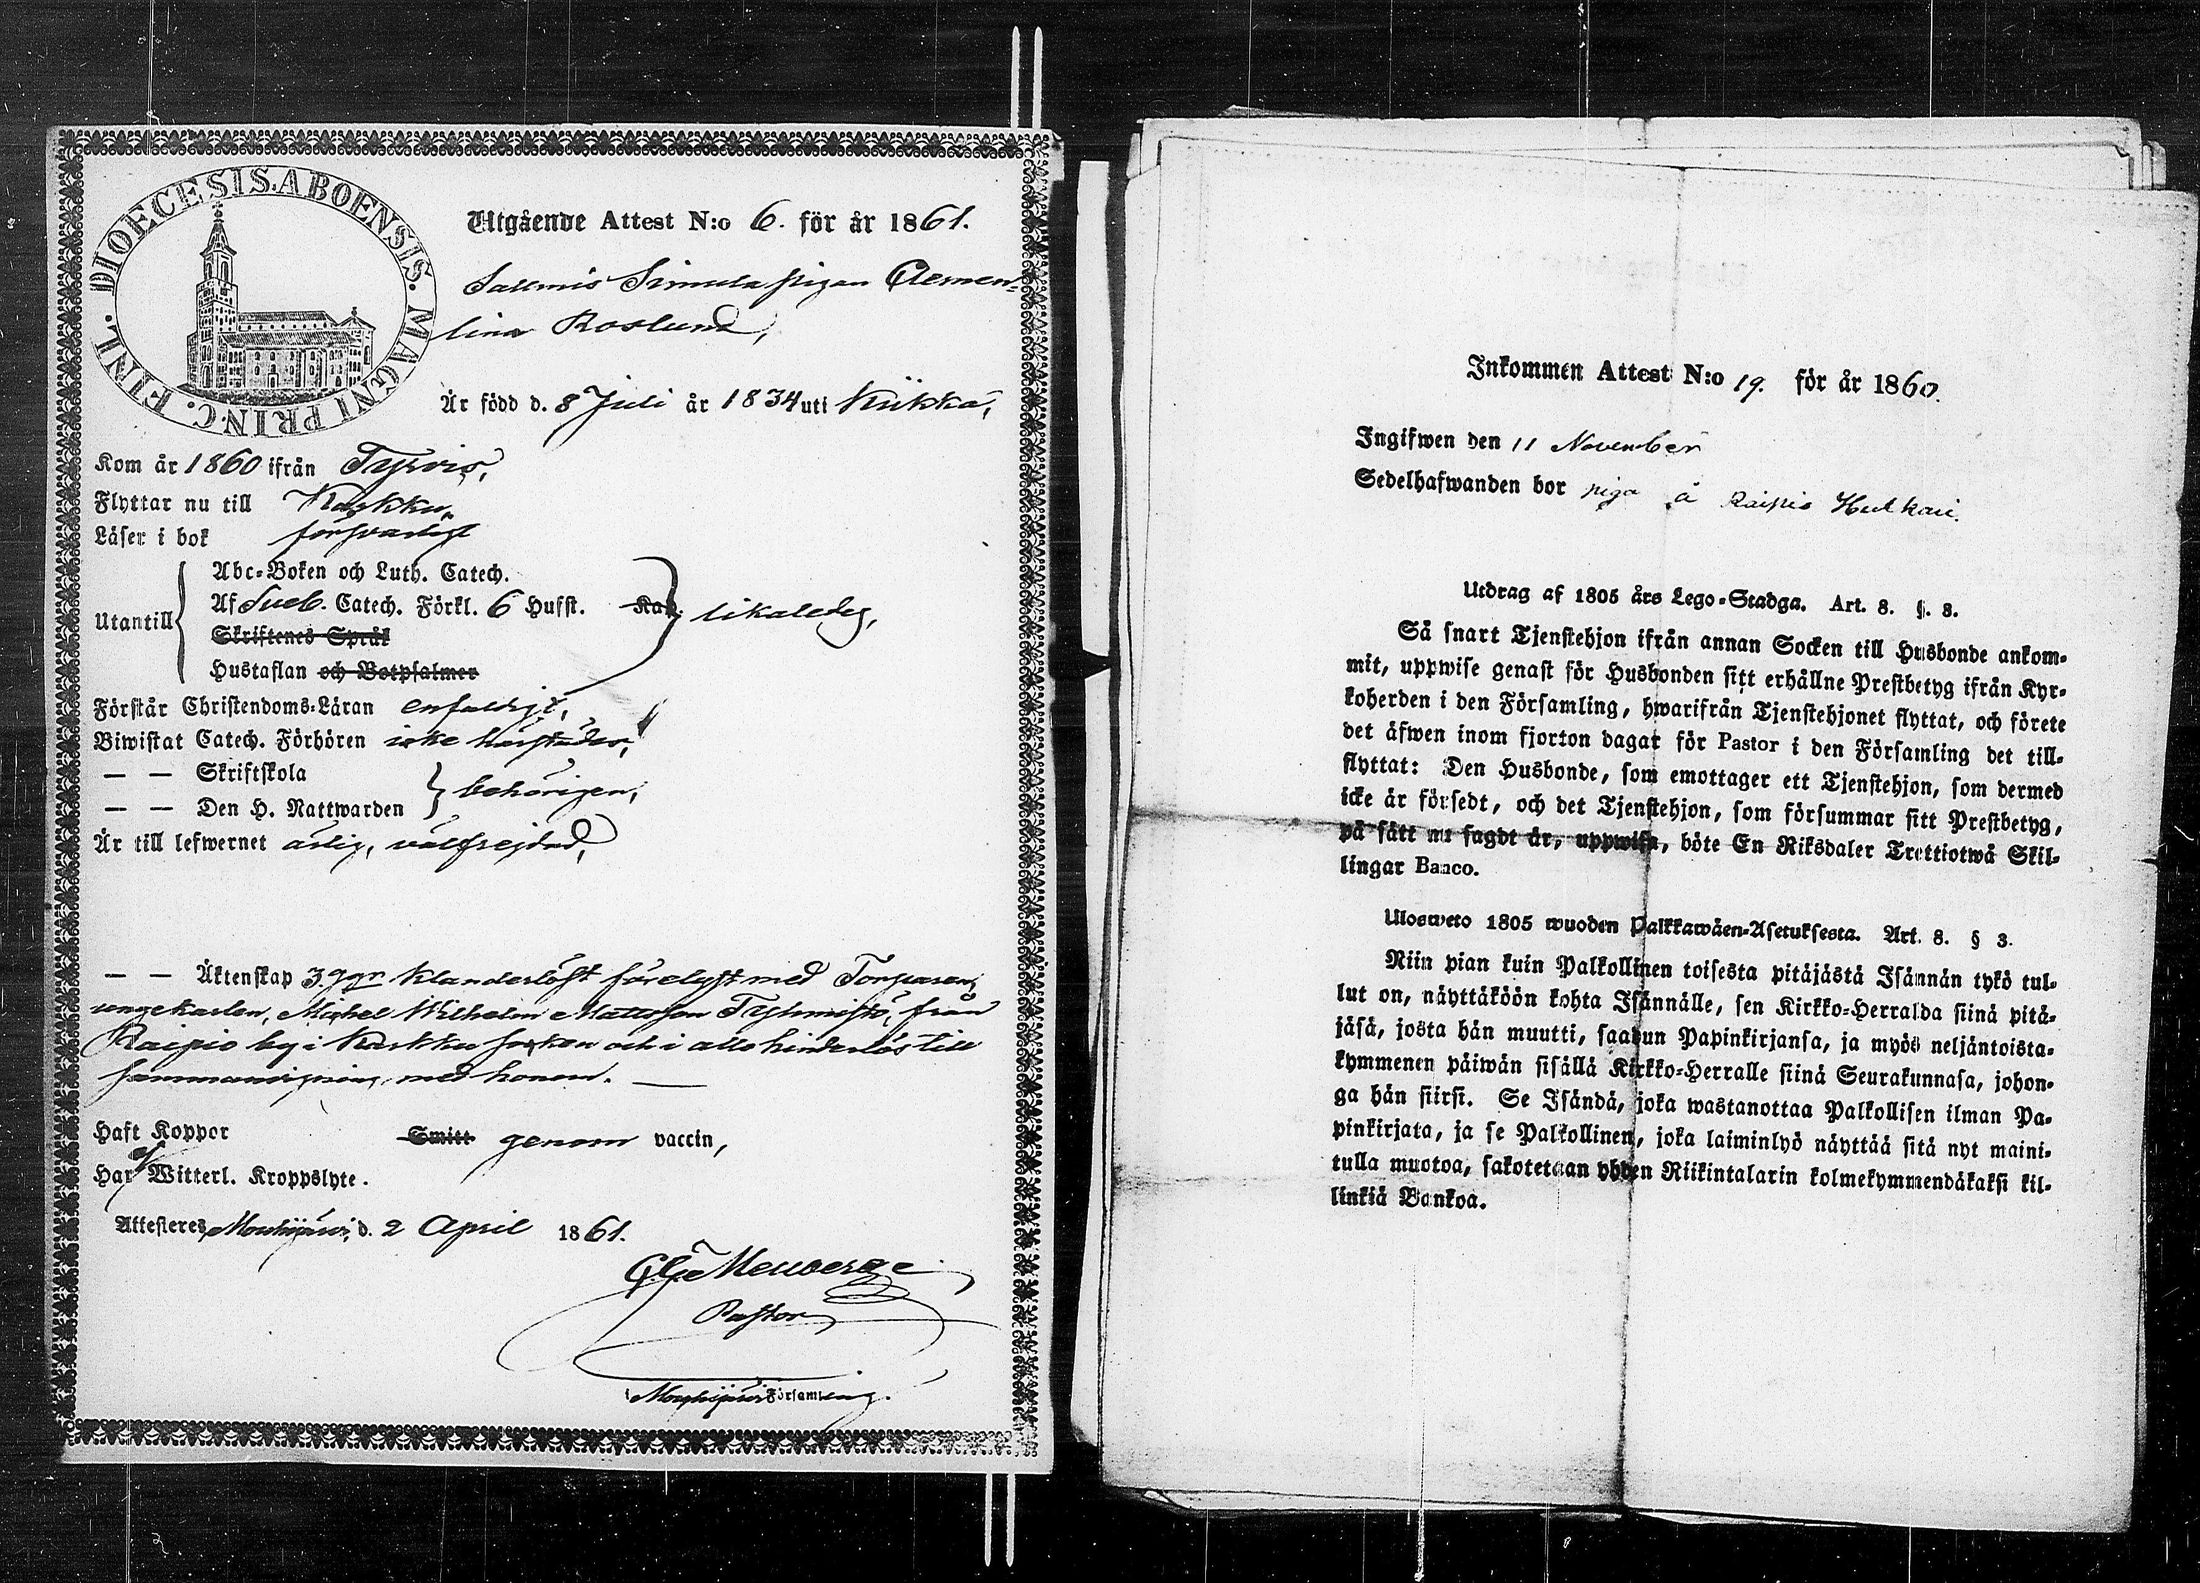 DIOECESIS. ABOENSIS. MAGNI PRINC. FINL.
Utgående Attest N:o 6. för år 1861.
Salmis Simula pigan Clemen-
tina Roslund,
Är född d. 8 Juli år 1834 uti Kiikka,
Kom år 1860 ifrån Tyrvis,
Flyttar nu till Karkku,
Läser i bok försvarligt
Abc-Boken och Luth. Catech.
Af Sveb. Catech. Förkl. 6 Hufst. Kap. likaledes,
Utantill
Skriftenes Språk
Hustaflan och Botpsalmer
Förstår Christendoms-Läran enfaldigt,
Biwistat Catech. Förhören icke härstädes,
— — Skriftskola
behörigen,
— — Den H. Nattwarden
Är till lefwernet ärlig, välfrejdad,
— — Äktenskap 3 ggr klanderlöst förelyst med Torparen,
ungekarlen, Michel Wilhelm Mattsson från
Raipio by i Karkku socken och i allo hinderlös till
sammanvigning med honom. —
Haft Koppor Smitt genom vaccin,
Har ej Witterl. Kroppslyte.
Attesteres, Mouhijärvi, d. 2 April 1861.
Pastor
i Mouhijärvi Församling.
Inkommen Attest N:o 19. för år 1860.
Ingifwen den 11 November
Sedelhafwanden bor piga å Raipio Hulkari.
Utdrag af 1805 års Lego-Stadga. Art. 8. §. 8.
Så snart Tjenstehjon ifrån annan Socken till Husbonde ankom-
mit, uppwise genast för Husbonden sitt erhållne Prestbetyg ifrån Kyr-
koherden i den Församling, hwarifrån Tjenstehjonet flyttat, och förete
det äfwen inom fjorton dagar för Pastor i den Församling det till-
flyttat: Den Husbonde, som emottager ett Tjenstehjon, som dermed
icke är försedt, och det Tjenstehjon, som försummar sitt Prestbetyg,
på sätt nu sagdt är, uppwisa, böte En Riksdaler Trettiotwå Skil-
lingar Banco.
Ulosweto 1805 wuoden Palkkawäen-Asetuksesta. Art. 8. § 3.
Niin pian kuin Palkollinen toisesta pitäjästä Isännän tykö tul-
lut on, näyttäköön kohta Isännälle, sen Kirkko-Herralda siinä pitä-
jäsä, josta hän muutti, saadun Papinkirjansa, ja myös neljäntoista-
kymmenen päiwän sisällä Kirkko-Herralle siinä Seurakunnasa, johon-
ga hän siirsi. Se Isändä, joka wastanottaa Palkollisen ilman Pa-
pinkirjata, ja se Palkollinen, joka laiminlyö näyttää sitä nyt maini-
tulla muotoa, sakotetaan yhden Riikintalarin kolmekymmendäkaksi kil-
linkiä Bankoa.